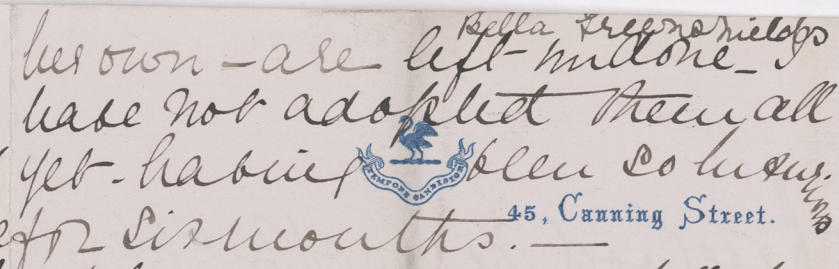 Bella Greenshields
her own - are left undone - I
have not adopted them all
yet - having been so
for six months. —
TEMPORE CANDIDIOR
45, Canning Street.